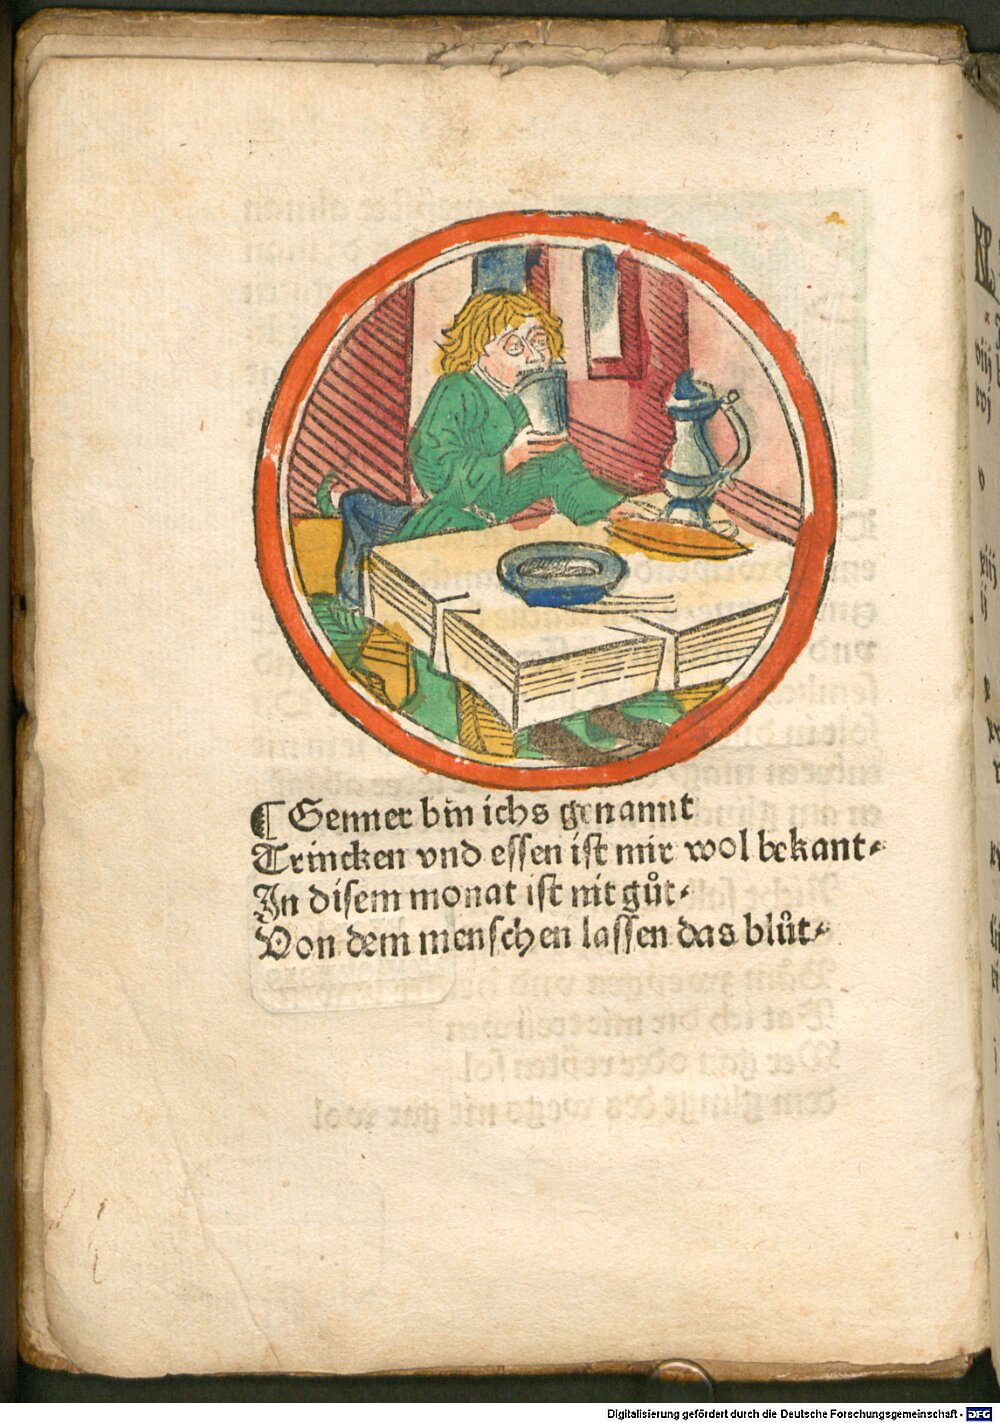 ¶ Genner bin ichs genannt
Trincken vnd essen ist mir wol bekant⸗
In disem monat ist nit gůt⸗
Von dem menschen lassen das blůt⸗
KL
viij
xvj
Digitalisierung gefördert durch die Deutsche Forschungsgemeinschaft - DFG